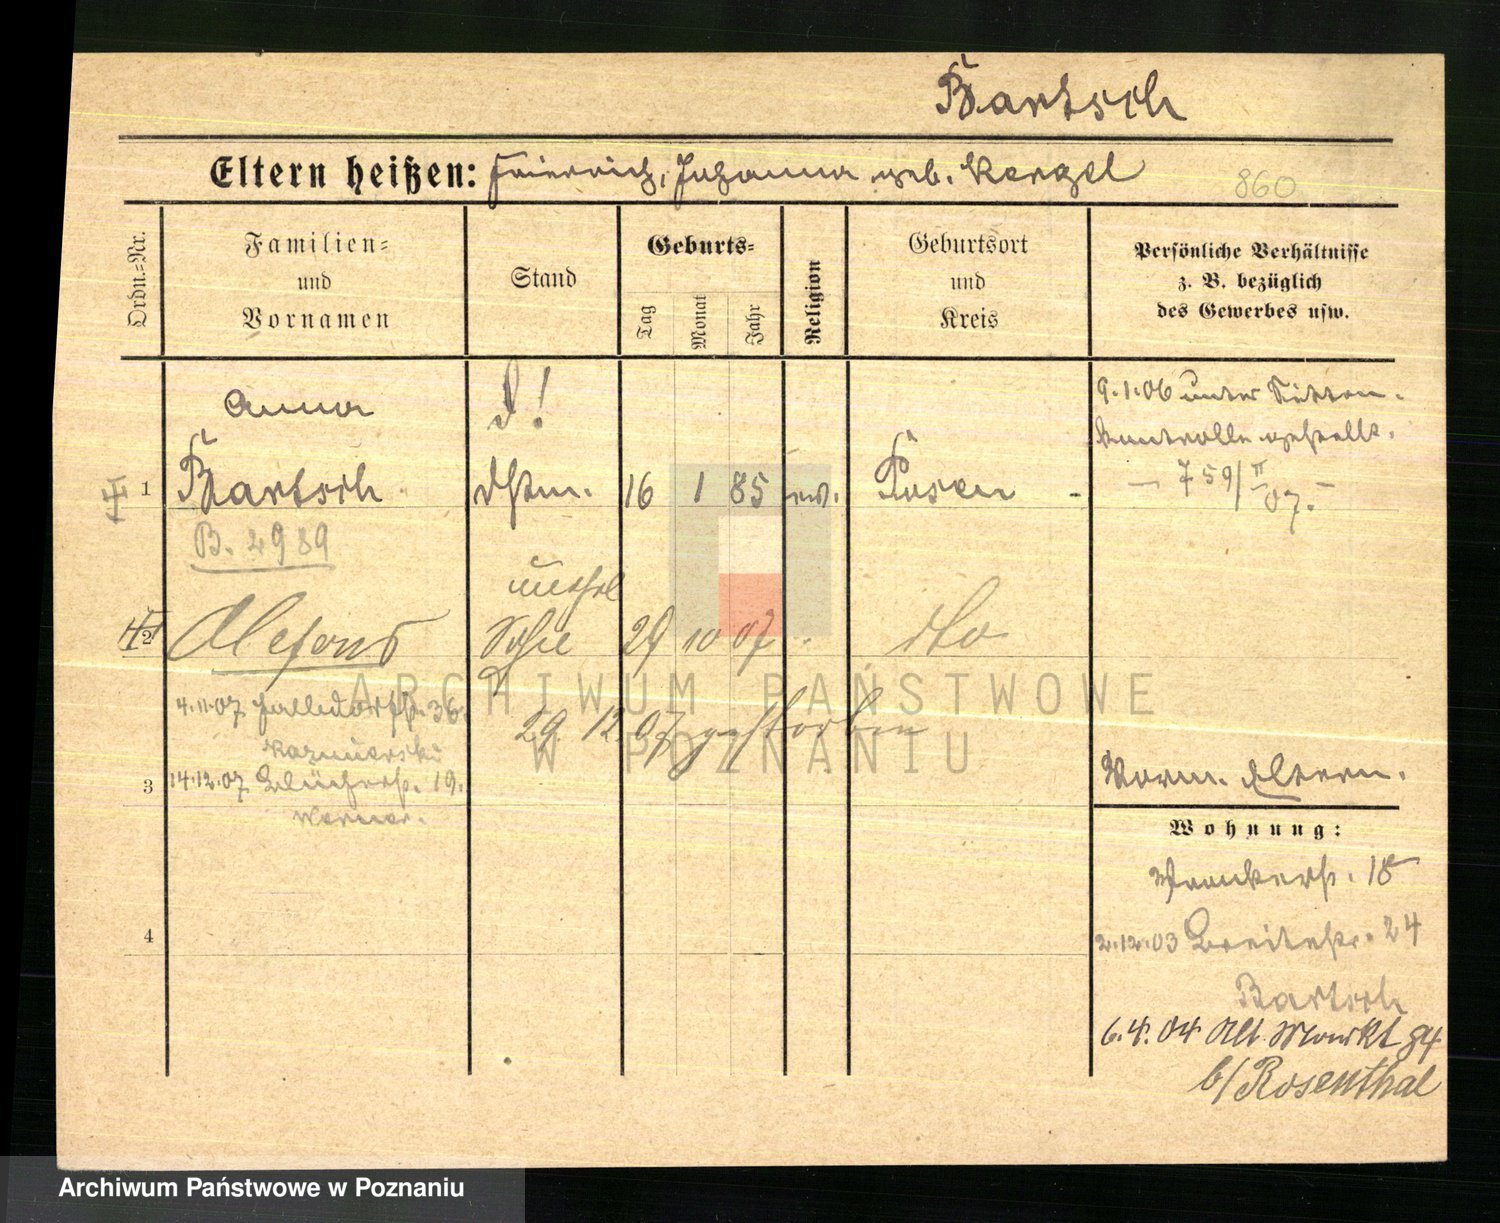 Bartsch
Eltern heißen: Friedrich, Johanna geb. Kergel
860
Ordn.-Nr.
Familien-
und
Vornamen
Stand
Geburts-
Tag
Monat
Jahr
Religion
Geburtsort
und
Kreis
Persönliche Verhältnisse
z. B. bezüglich
des Gewerbes usw.
Anna
9.1.06 unter Sitten-
kontrolle gestellt.
1 Bartsch 16 1 85 ev. Posen -
— 759/II 07. —
B. 2989
unehel
2 Alefons Sohn 29 10 07 dto
4.11.07 36
29.12.07 gestorben
Kazmierski
3 14.12.07 Blücherst. 19.
Werner.
Vorm. Eltern.
Wohnung:
18
4
2.12.03 Breitestr. 24
Bartsch
6.4.04 Alt. Markt 84
b/Rosenthal
ARCHIWUM PAŃSTWOWE
W POZNANIU
Archiwum Państwowe w Poznaniu